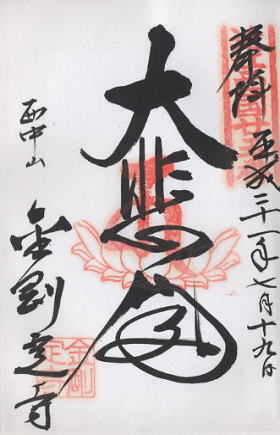 奉拝 平成二十一年七月十九日
大悲殿
西中山
金剛定寺